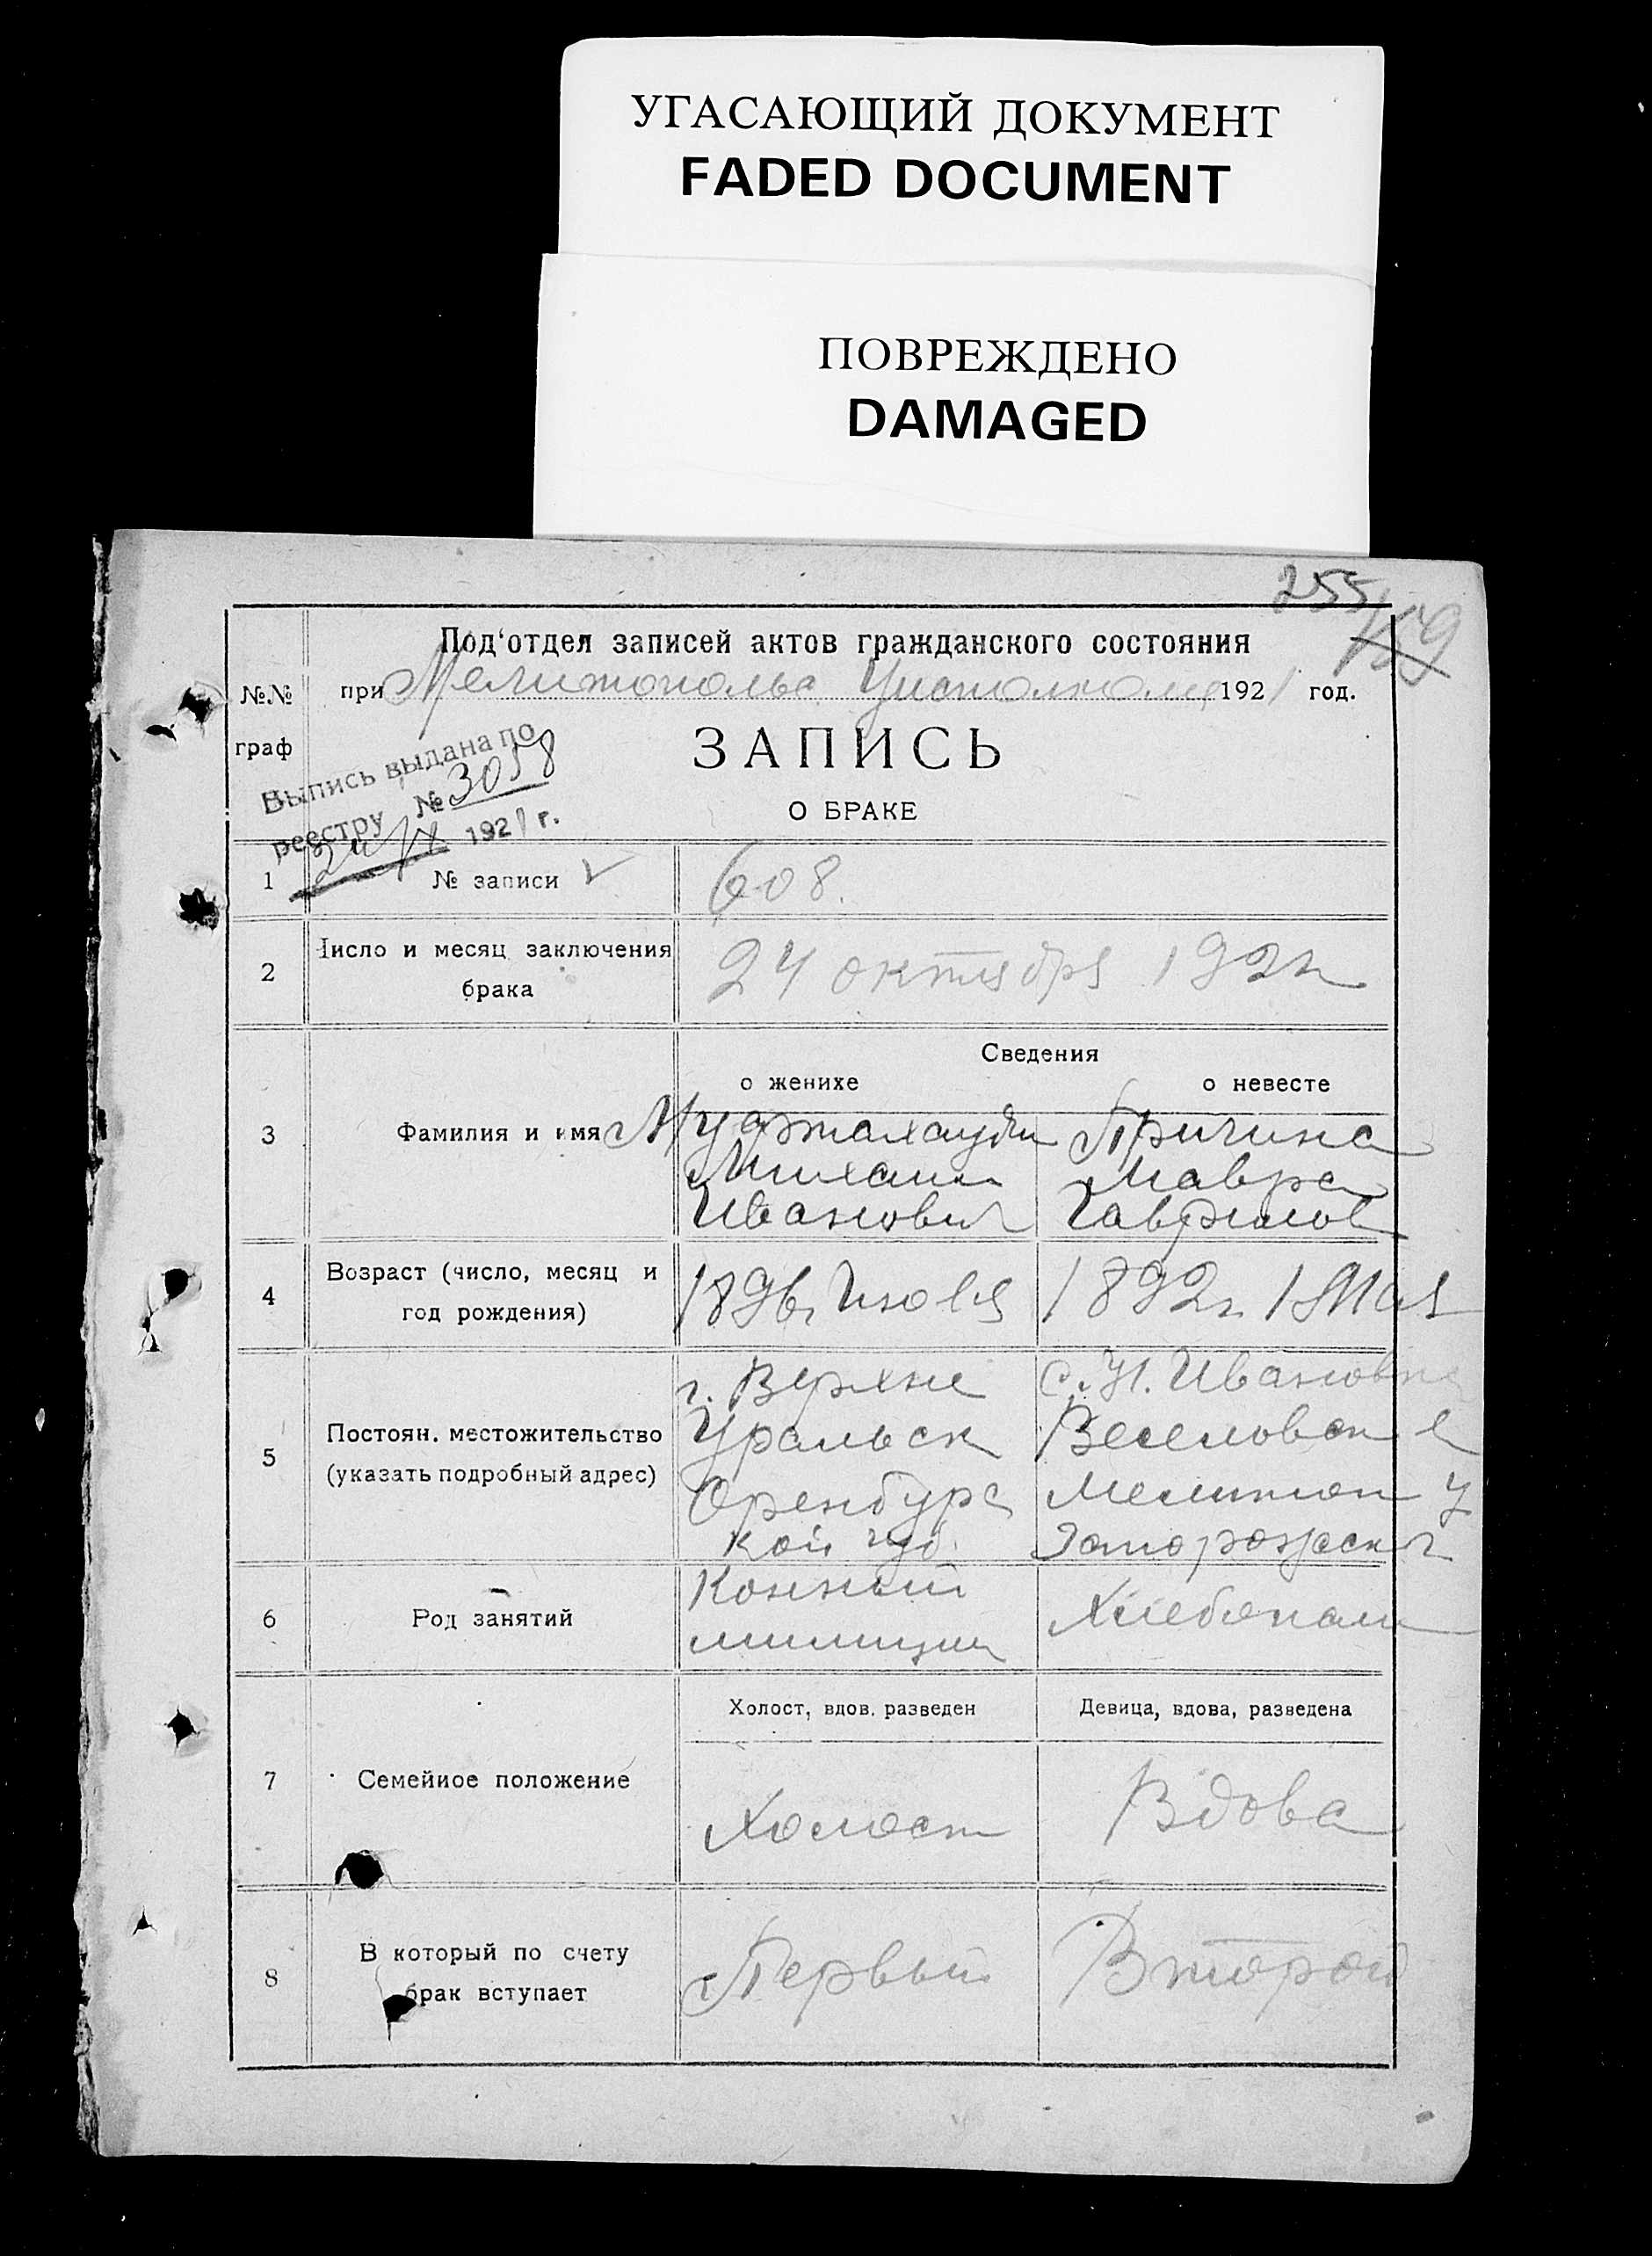 УГАСАЮЩИЙ ДОКУМЕНТ
FADED DOCUMENT
ПОВРЕЖДЕНО
DAMAGED
255
159
Под'отдел записей актов гражданского состояния
№№ граф
при Мелитопольс Уисполкоме 1921 год.
Выпись выдана по
реестру № 3058
1921 г.
ЗАПИСЬ
О БРАКЕ
1 № записи 608.
2 Число и месяц заключения
брака
24 октября 192 г
Сведения
о женихе о невесте
3 Фамилия и имя
Причина
Михаил Мавра
Иванович Гаврилов
4 Возраст (число, месяц и
год рождения)
1896 г 1892 г. 1 Мая
5 Постоян. местожительство
(указать подробный адрес)
г. Верхне
Уральск
Оренбургс
кой губ.
с. Н. Ивановка
Веселовск в
Мелитоп у
Запорожск г
6 Род занятий
Конный
милиции
Хлебопаш
7 Семейное положение
Холост, вдов. разведен Девица, вдова, разведена
Холост Вдова
8 В который по счету
брак вступает
Первый Второй